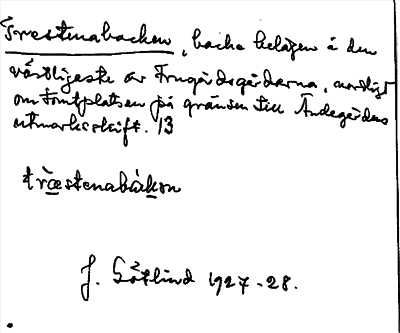 Trestenabacken, backe belägen i den
västligaste av Frugårdsgårdarna, nordligt
om Tomtplatsen på gränsen till Ändegårdens
utmarksskift. 13
træstenabákkon
J. Götlind 1927-28.